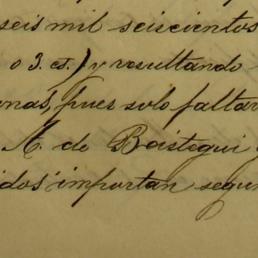 seis mil seiscientos
o 3. cs.) y resultando
pues solo faltar
M. de Beistegui y
importan segun